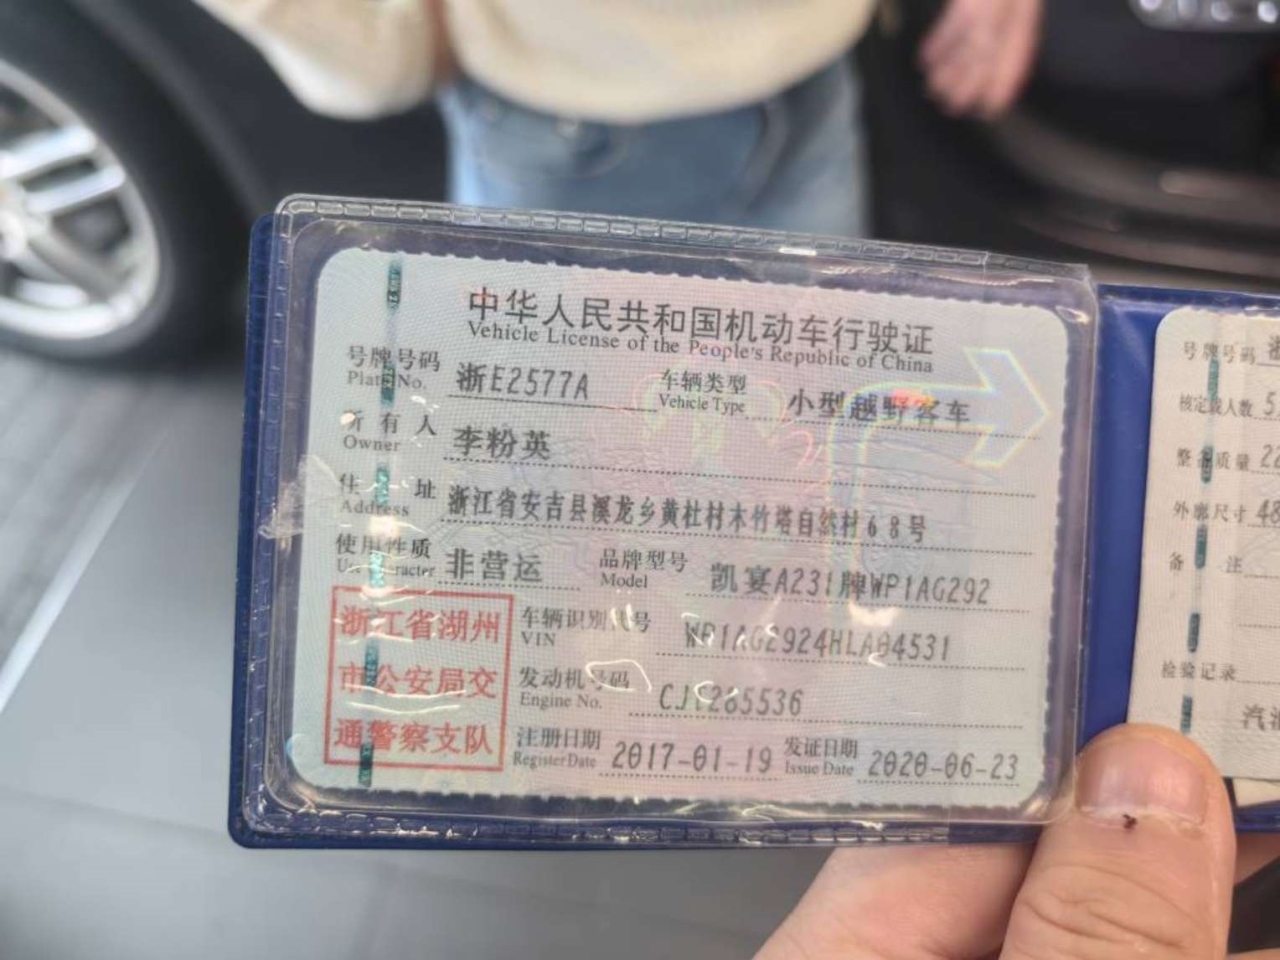 中华人民共和国机动车行驶证
Vehicle License of the People's Republic of China
号牌号码 浙E2577A 车辆类型 小型越野客车
Plate No. Vehicle Type
所有人 李粉英
Owner
住址 浙江省安吉县溪龙乡黄杜村木竹塔自然村68号
Address
使用性质 非营运 品牌型号 凯宴A231牌WP1AG292
Use Character Model
浙江省湖州
市公安局交
通警察支队
车辆识别代号 WP1AG2924HLA04531
VIN
发动机号码
Engine No.
注册日期 2017-01-19 发证日期 2020-06-23
Register Date Issue Date
号牌号码
核定载人数 5
整备质量 22
外廓尺寸 48
备注
检验记录